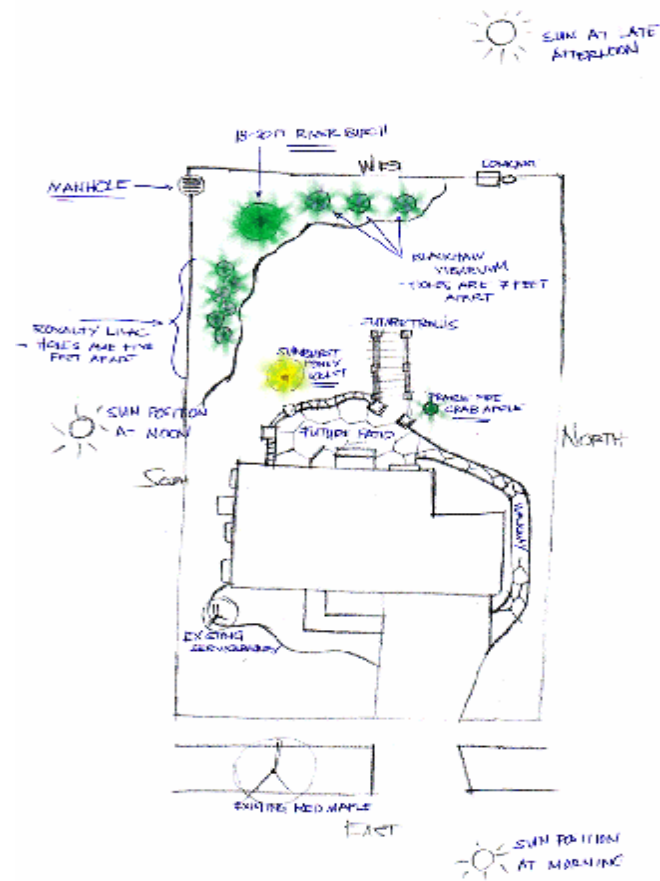 SUN AT LATE
AFTERNOON
RIVER BIRCH
WEST
MANHOLE
VIBURNUM
- HOLES ARE 7 FEET
APART
ROYALTY LILAC
- HOLES ARE FIVE
FEET APART
FUTURE TRELLIS
SUNBURST
HONEY
LOCUST
CRAB APPLE
SUN POSITION
AT NOON
FUTURE PATIO
NORTH
WALKWAY
EXISTING
SERVICEBERRY
EXISTING RED MAPLE
EAST
SUN POSITION
AT MORNING